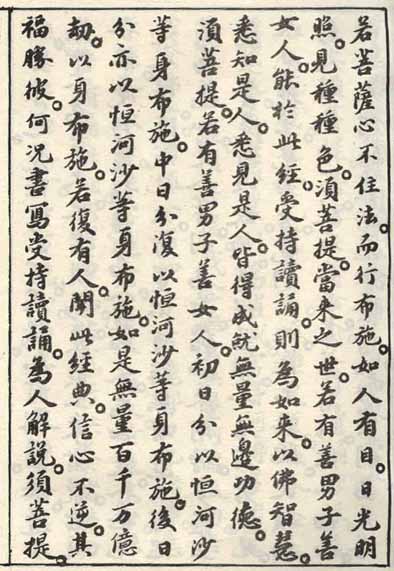 若菩薩心不住法。而行布施。如人有目。日光明
照。見種種色。湏菩提。當来之世。若有善男子善
女人。能於此經。受持讀誦。則為如来。以佛智慧。
悉知是人。悉見是人。皆得成就無量無邊功德。
湏菩提。若有善男子善女人。初日分以恒河沙
等身布施。中日分復以恒河沙等身布施。後日
分亦以恒河沙等身布施。如是無量百千万億
劫。以身布施。若復有人。聞此經典。信心不逆。其
福勝彼。何況書寫受持讀誦。為人解說。須菩提。